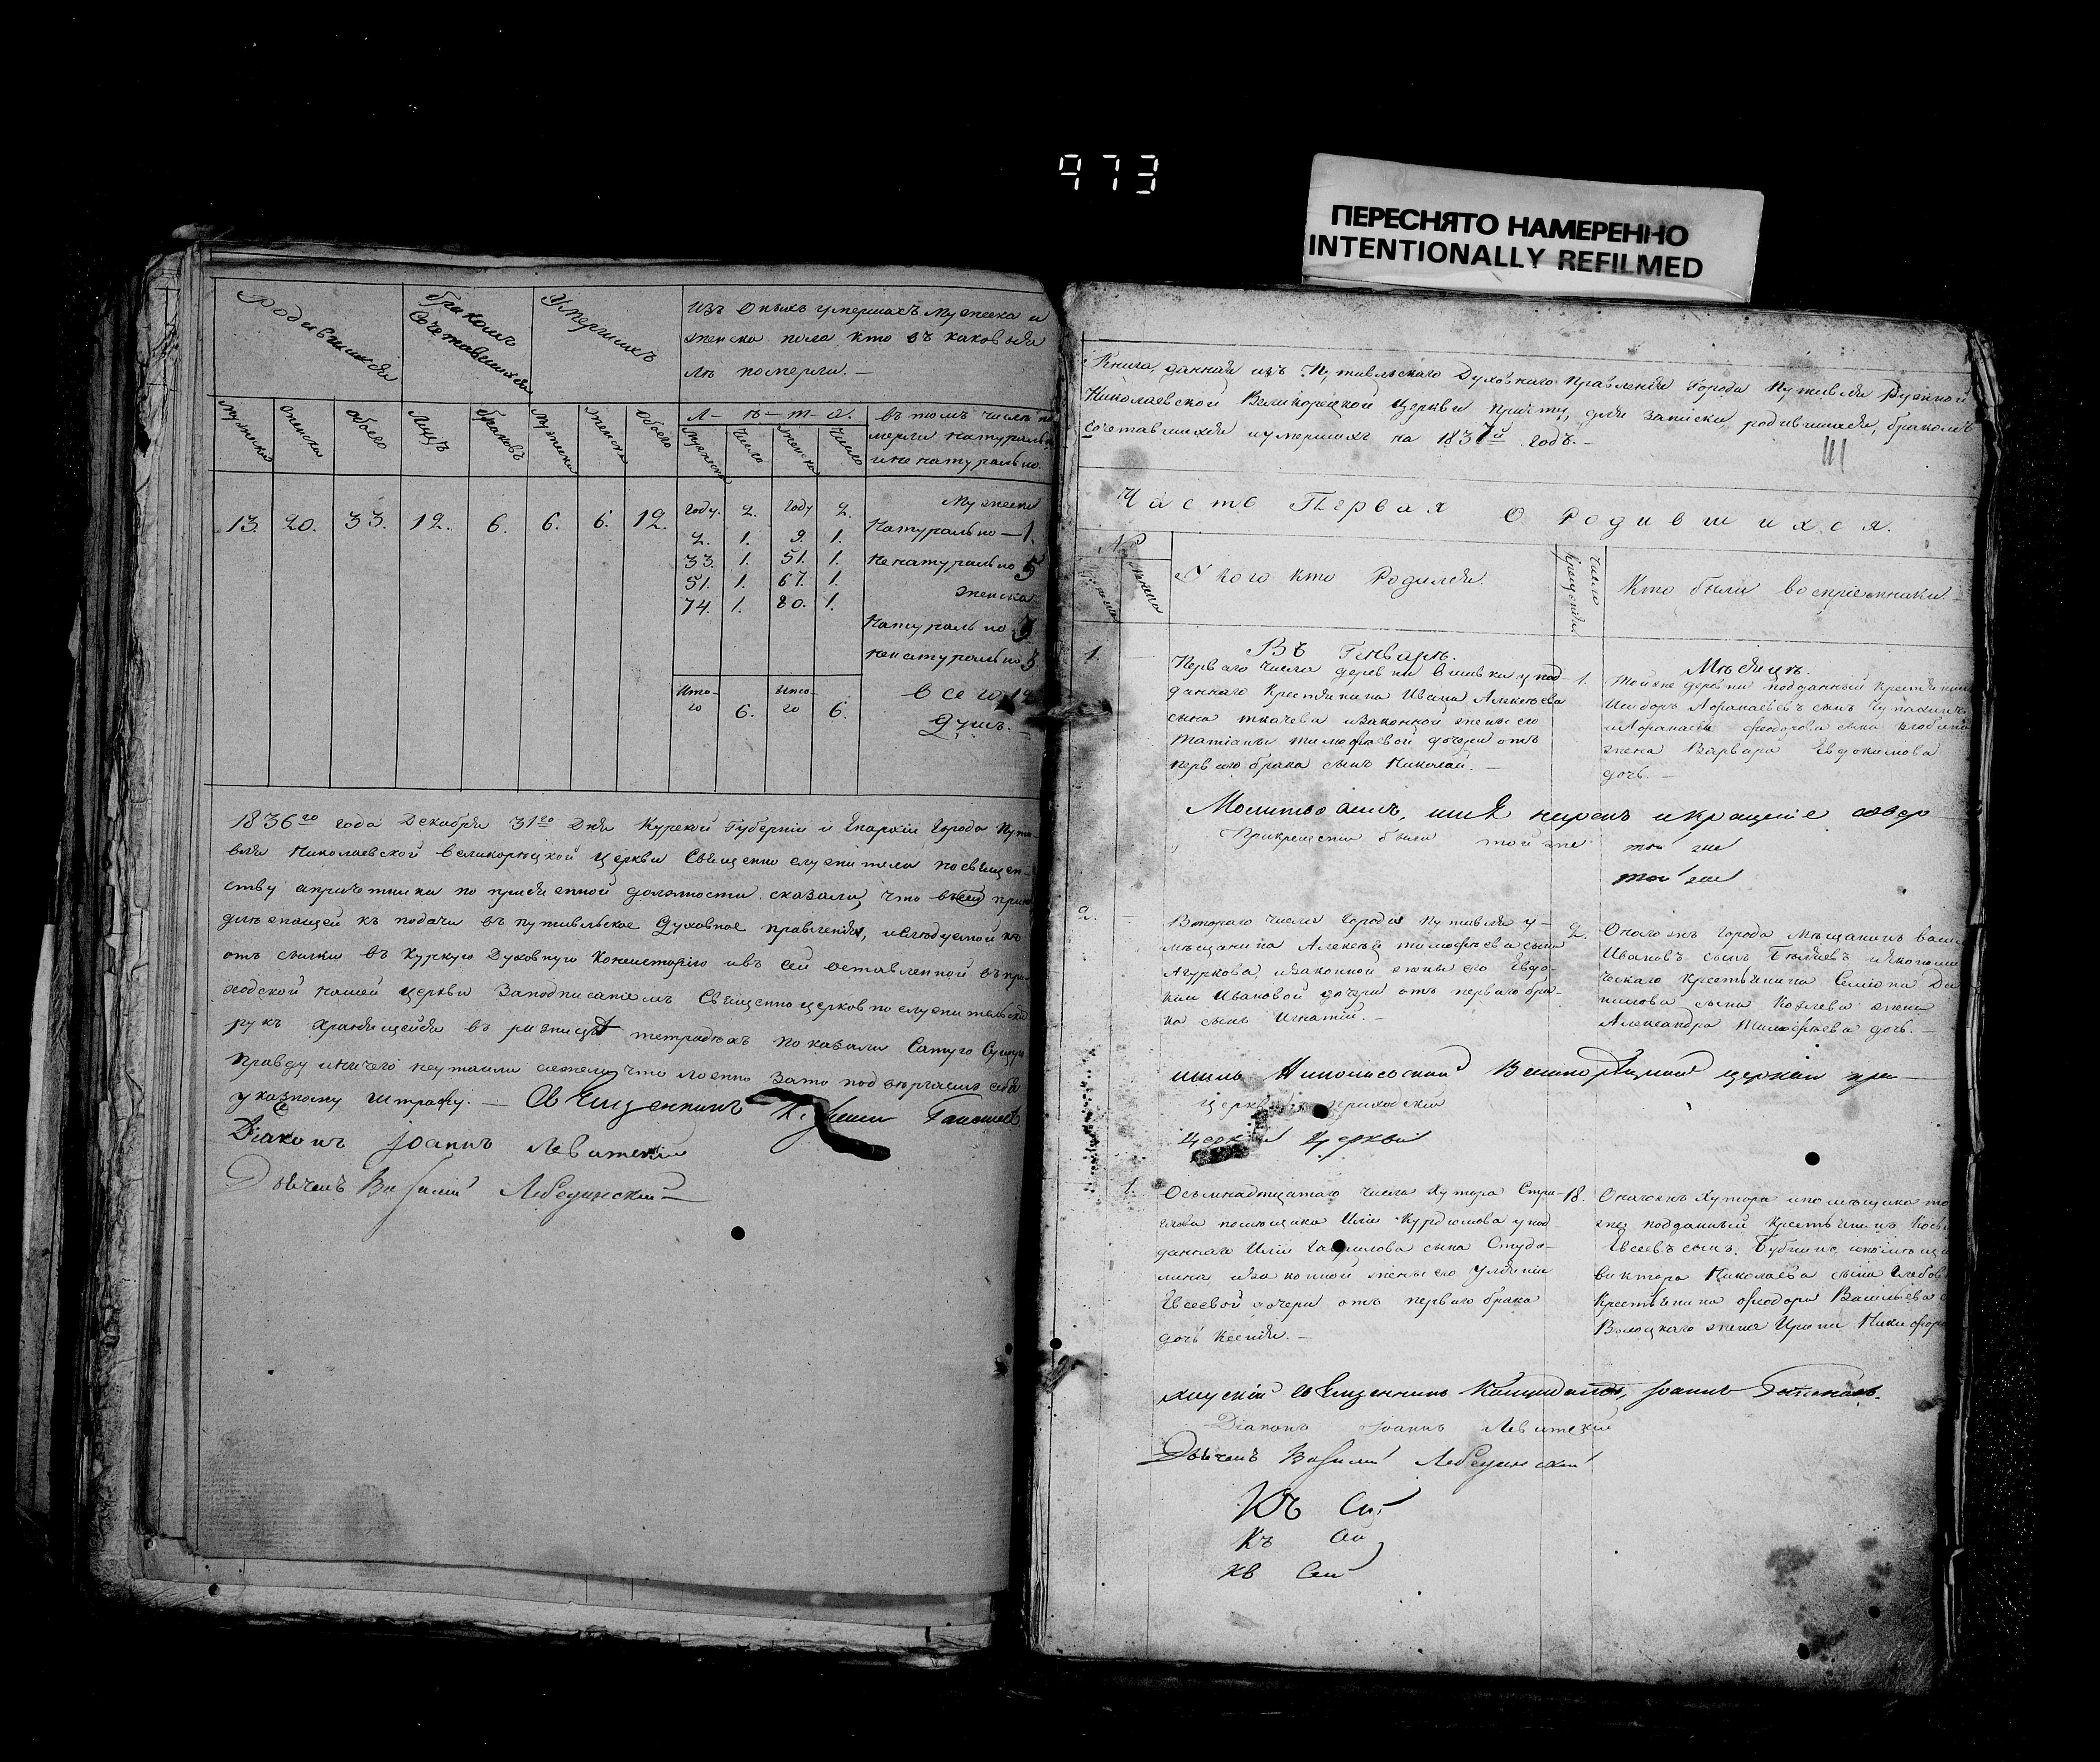 973
ПЕРЕСНЯТО НАМЕРЕННО
INTENTIONALLY REFILMED
Родившихся
бракомъ Сочетавшихся
Умершихъ
изъ оныхъ умершихъ мужеска и
женска пола кто въ каковыя
лѣ померли. —
мужеска
женска
обоего
Лицъ
браковъ
мужеска
женска
обоего
Л - ѣ - т - а.
мужеска
число
женска
число
въ томъ числѣ по
мерли натурально
и не натурально.
13. 20. 33. 12. 6. 6. 6. 12.
году. 2. году 2.
2. 1. 9. 1.
33. 1. 51. 1.
51. 1. 67. 1.
74. 1. 80. 1.
Мужеска
Натурально — 1.
Ненатурально 5
женска
Натурально 3
ненатурально 3
Ито-
го 6.
Ито-
го 6.
всего 12
Душъ. —
1836го года Декабря 31го Дня Курской Губерніи и Епархіи Города Пути-
вля Николаевской великорѣцкой церкви Священно служители по священ-
ству а причетники по присяжной должности сказали, что въ сей прина
длежащей къ подачи въ путивльское Духовное правленія, и слѣдуемой къ
отъ сылки въ Курскую Духовную Консисторію и въ сей оставленной въ при-
ходской нашей церкви Заподписаніемъ Священно церковно служительскихъ
рукъ хранящейся въ ризницѣ тетрадяхъ показали Самую Сущую
правду и ничего неутаили ежели что ложно Зато подвергаемъ себя
указному штрафу. — Священникъ
Діаконъ Іоаннъ Левитскій
Дьячекъ Василій Лебединскій
Книга, данная изъ Путивльскаго Духовнаго правленія Города Путивля Ружной
Николаевской Великорецкой церкви причту, для записки родившихся, бракомъ
сочетавшихся и умершихъ на 1837й годъ. —
Часть Первая О Родившихся.
№
У кого кто Родился.
Число крещенія
Кто были воспріемники
Въ Генваре.
Мѣсяцѣ.
1.
Перваго числа деревни Вишевки у под-
даннаго Крестянина Ивана Алексеева
сына ткачева и законной жены его
Татіаны тимофѣевой дочери отъ
перваго брака сынъ Николай. —
1.
Тойже деревни подданный крестянинъ
Исидоръ Афанасьевъ сынъ
и Афанасія феодорова сына
жена Варвара Евдокимова
дочь. —
Молитвовалъ, имя нарекъ и крещеніе совер
Прикрещеніи былъ той же
той же
той же
2.
Втораго числа Города Путивля у
мѣщанина Алексея тимофѣева сына
Агуркова, и законной жены его Евдо-
кіи Ивановой дочери отъ перваго бра-
ка сынъ Игнатій. —
2.
Оногожъ Города мѣщанинъ
Ивановъ сынъ Бѣляевъ и Економи
ческаго крестьянина Семіона Да
нилова сына Козлева жена
Александра Тимофѣева дочь. —
шилъ Николаевской Великорѣцкой церкви при
церкви приходскій
церкви
1.
Осьмнадцатаго числа Хутора Стри-
помѣщика Иліи Курдюмова у под-
даннаго Иліи Гаврилова сына Студо-
лина и законной жены его Уліяніи
Евсеевой дочери отъ перваго брака
дочь Ксенія. —
18.
Оногожъ Хутора и помѣщика то
же подданный крестьянинъ
Евсеевъ сынъ
виктора Николаева сына
Крестьянина феодора Васильева
жена Ирина Никифоро
ходскій священникъ
Діаконъ Іоаннъ Левитскій
Дьячекъ Василій Лебединскій
Къ Сей
Къ Сей
Къ Сей